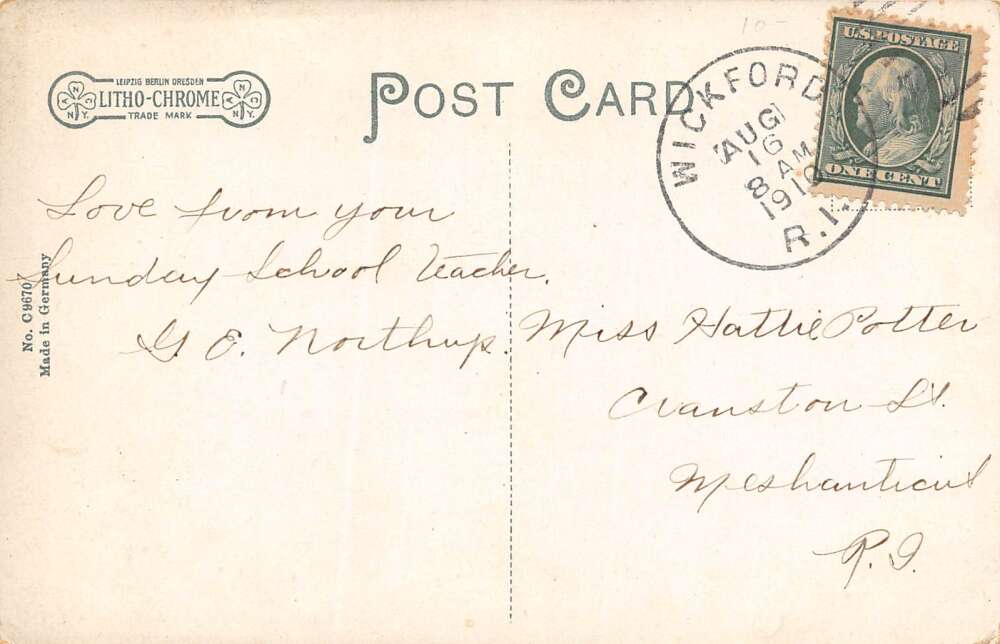 LEIPZIG BERLIN DRESDEN
LITHO-CHROME
TRADE MARK
A N N.Y.
A N C N.Y.
POST CARD
10-
WICKFORD
AUG
16
8 AM
1910
R.I.
U.S. POSTAGE
ONE CENT
No. C9670
Made in Germany
Love from your
Sunday School Teacher.
G. E. Northup.
Miss Hattie Potter
Cranston St.
Meshanticut
R.I.